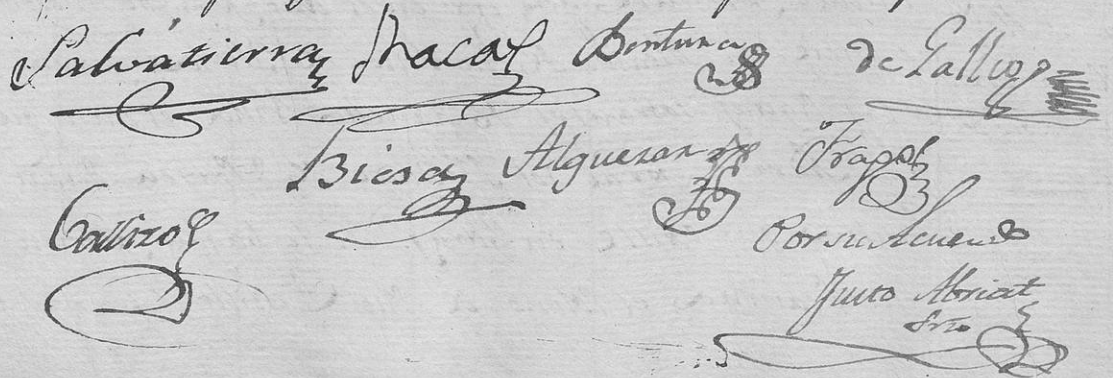 Salvatierra Jhaca Bentura de Gallego
Biesa Alguezar Frago
Callizo
Por su Acuerdo
Justo Abriat
Srio